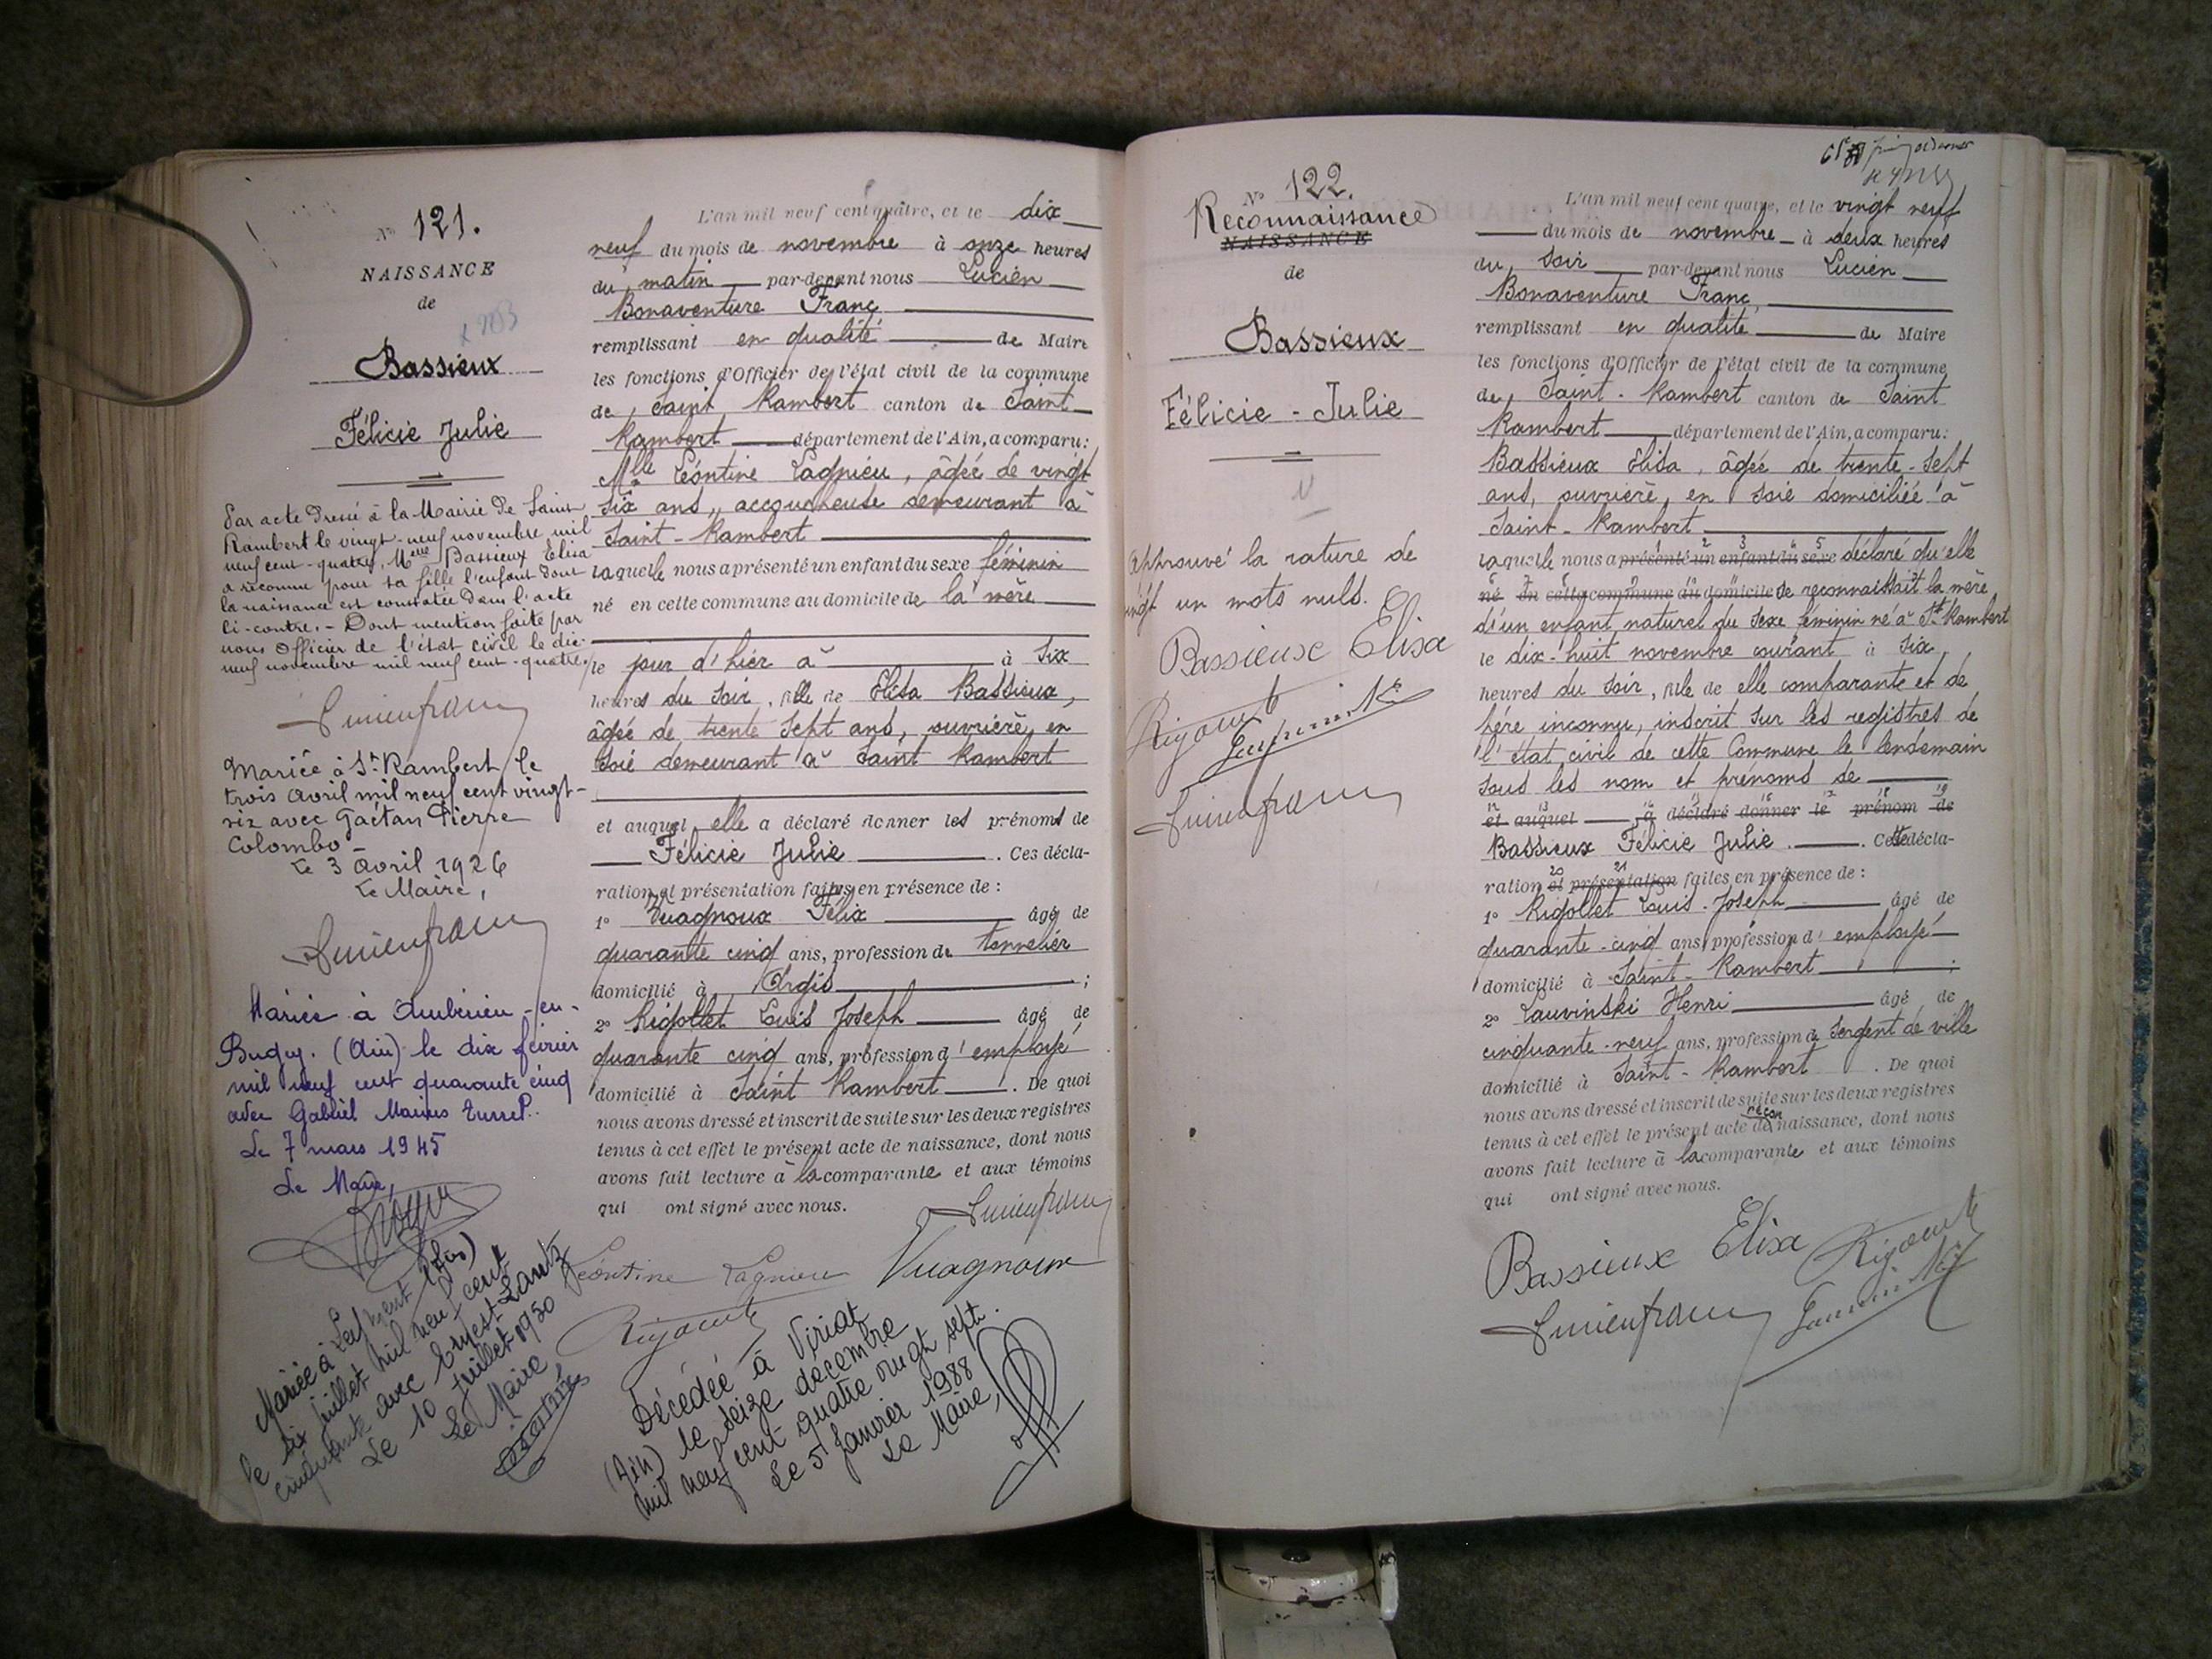 N° 121.
NAISSANCE
de
Bassieux
Félicie Julie
Par acte dressé à la Mairie de Saint
Rambert le vingt-neuf novembre mil
neuf cent-quatre, Melle Bassieux Elisa
a reconnu pour sa fille l'enfant dont
la naissance est constatée dans l'acte
ci-contre. - Dont mention faite par
nous Officier de l'état civil le dix-
neuf novembre mil neuf cent-quatre.
Lucien franc
Mariée à St Rambert le
trois avril mil neuf cent vingt-
six avec Gaétan Pierre
Colombo
Le 3 avril 1926
Le Maire,
Lucien franc
Mariée à Ambérieu-en-
Bugey. (Ain) le dix février
mil neuf cent quarante cinq
avec Gabriel Marius
Le 7 mars 1945
Le Maire,
Mariée à
le six juillet mil neuf cent
cinquante avec Ernest Lantz
Le 10 juillet 1950
Le Maire
L'an mil neuf cent quatre, et le dix
neuf du mois de novembre à onze heures
du matin par-devant nous Lucien
Bonaventure Franc
remplissant en qualité de Maire
les fonctions d'Officier de l'état civil de la commune
de Saint Rambert canton de Saint
Rambert département de l'Ain, a comparu:
Mlle Léontine Lagnieu, âgée de vingt
six ans, accoucheuse demeurant à
Saint-Rambert
laquelle nous a présenté un enfant du sexe féminin
né en cette commune au domicile de la mère
le jour d'hier à à six
heures du soir, fille de Elisa Bassieux,
âgée de trente sept ans, ouvrière en
soie demeurant à Saint Rambert
et auquel elle a déclaré donner les prénoms de
Félicie Julie . Ces décla-
ration et présentation faites en présence de :
1° Vuagnoux Félix âgé de
quarante cinq ans, profession de tonnelier
domicilié à Argis ;
2° Rigollet Louis Joseph âgé de
quarante cinq ans, profession d'employé
domicilié à Saint Rambert . De quoi
nous avons dressé et inscrit de suite sur les deux registres
tenus à cet effet le présent acte de naissance, dont nous
avons fait lecture à la comparante et aux témoins
qui ont signé avec nous.
Lucien franc
Léontine Lagnieu Vuagnoux
Décédée à Viriat
(Ain) le seize decembre
mil neuf cent quatre vingt sept.
Le 5 Janvier 1988
Le Maire,
N° 122.
Reconnaissance
NAISSANCE
de
Bassieux
Félicie - Julie
Approuvé la rature de
vingt un mots nuls.
Bassieux Elisa
Lucien franc
L'an mil neuf cent quatre, et le vingt neuf
du mois de novembre à deux heures
du soir par-devant nous Lucien
Bonaventure Franc
remplissant en qualité de Maire
les fonctions d'Officier de l'état civil de la commune
de Saint-Rambert canton de Saint
Rambert département de l'Ain, a comparu:
Bassieux Elisa, âgée de trente-sept
ans, ouvrière en soie domiciliée à
Saint-Rambert
laquelle nous a présenté un enfant du sexe déclaré qu'elle
né en cette commune au domicile de reconnaissait la mère
d'un enfant naturel du sexe féminin né à St Rambert
le dix-huit novembre courant à six
heures du soir, fille de elle comparante et de
père inconnu, inscrit sur les registres de
l'état civil de cette Commune le lendemain
sous les nom et prénoms de
et auquel a déclaré donner le prénom de
Bassieux Félicie Julie . Cette décla-
ration et présentation faites en présence de :
1° Rigollet Louis-Joseph âgé de
quarante-cinq ans, profession d'employé
domicilié à Saint-Rambert ;
2° Lauvinski Henri âgé de
cinquante-neuf ans, profession de sergent de ville
domicilié à Saint-Rambert . De quoi
nous avons dressé et inscrit de suite sur les deux registres
tenus à cet effet le présent acte de recon naissance, dont nous
avons fait lecture à la comparante et aux témoins
qui ont signé avec nous.
Bassieux Elisa
Lucien franc